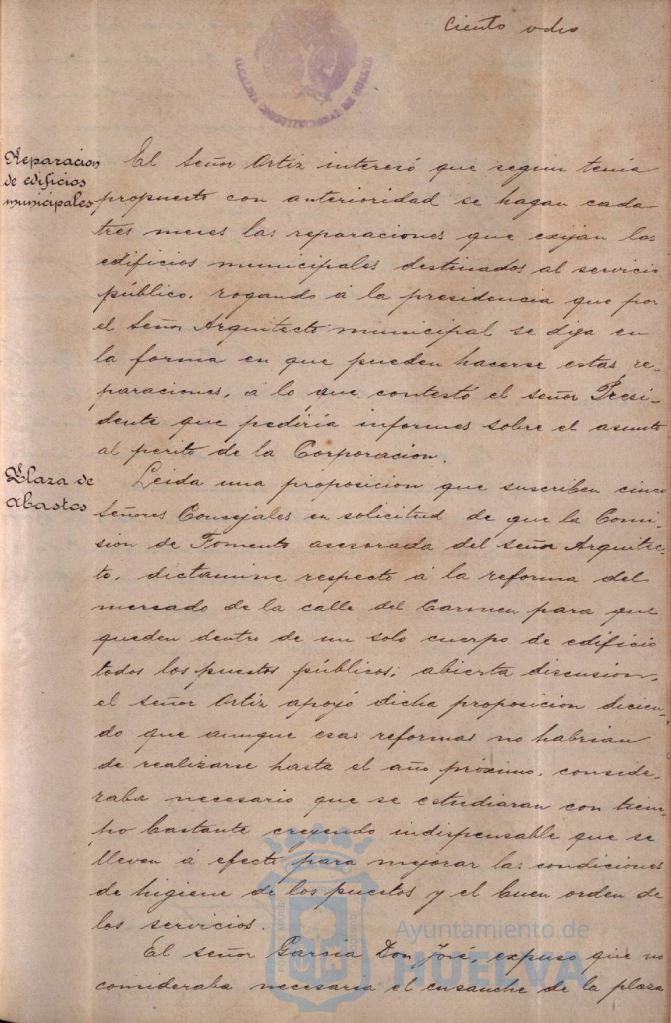 Ciento ocho
ALCALDIA CONSTITUCIONAL DE HUELVA
Reparacion
de edificios
municipales
El Señor Ortiz interesó que segun tenia
propuesto con anterioridad se hagan cada
tres meses las reparaciones que exijan los
edificios municipales destinados al servicio
público. rogando á la presidencia que por
el Señor Arquitecto municipal se diga en
la forma en que pueden hacerse estas re-
paraciones, á lo que contestó el señor Presi-
dente que pediria informes sobre el asunto
al perito de la Corporacion.
Plaza de
Abastos
Leida una proposicion que suscriben cinco
Señores Consejales en solicitud de que la Comi-
sion de Fomento asesorada del señor Arquitec-
to, dictamine respecto á la reforma del
mercado de la calle del Carmen para que
queden dentro de un solo cuerpo de edificio
todos los puestos públicos; abierta discusion,
el señor Ortiz apoyó dicha proposicion dicien-
do que aunque esas reformas no habrian
de realizarse hasta el año próximo, conside-
raba necesario que se estudiaran con tiem-
po bastante creyendo indispensable que se
lleven á efecto para mejorar las condiciones
de higiene de los puestos y el buen orden de
los servicios.
El señor Garcia Don José, expuso que no
consideraba necesaria el ensanche de la plaza
Ayuntamiento de
HUELVA